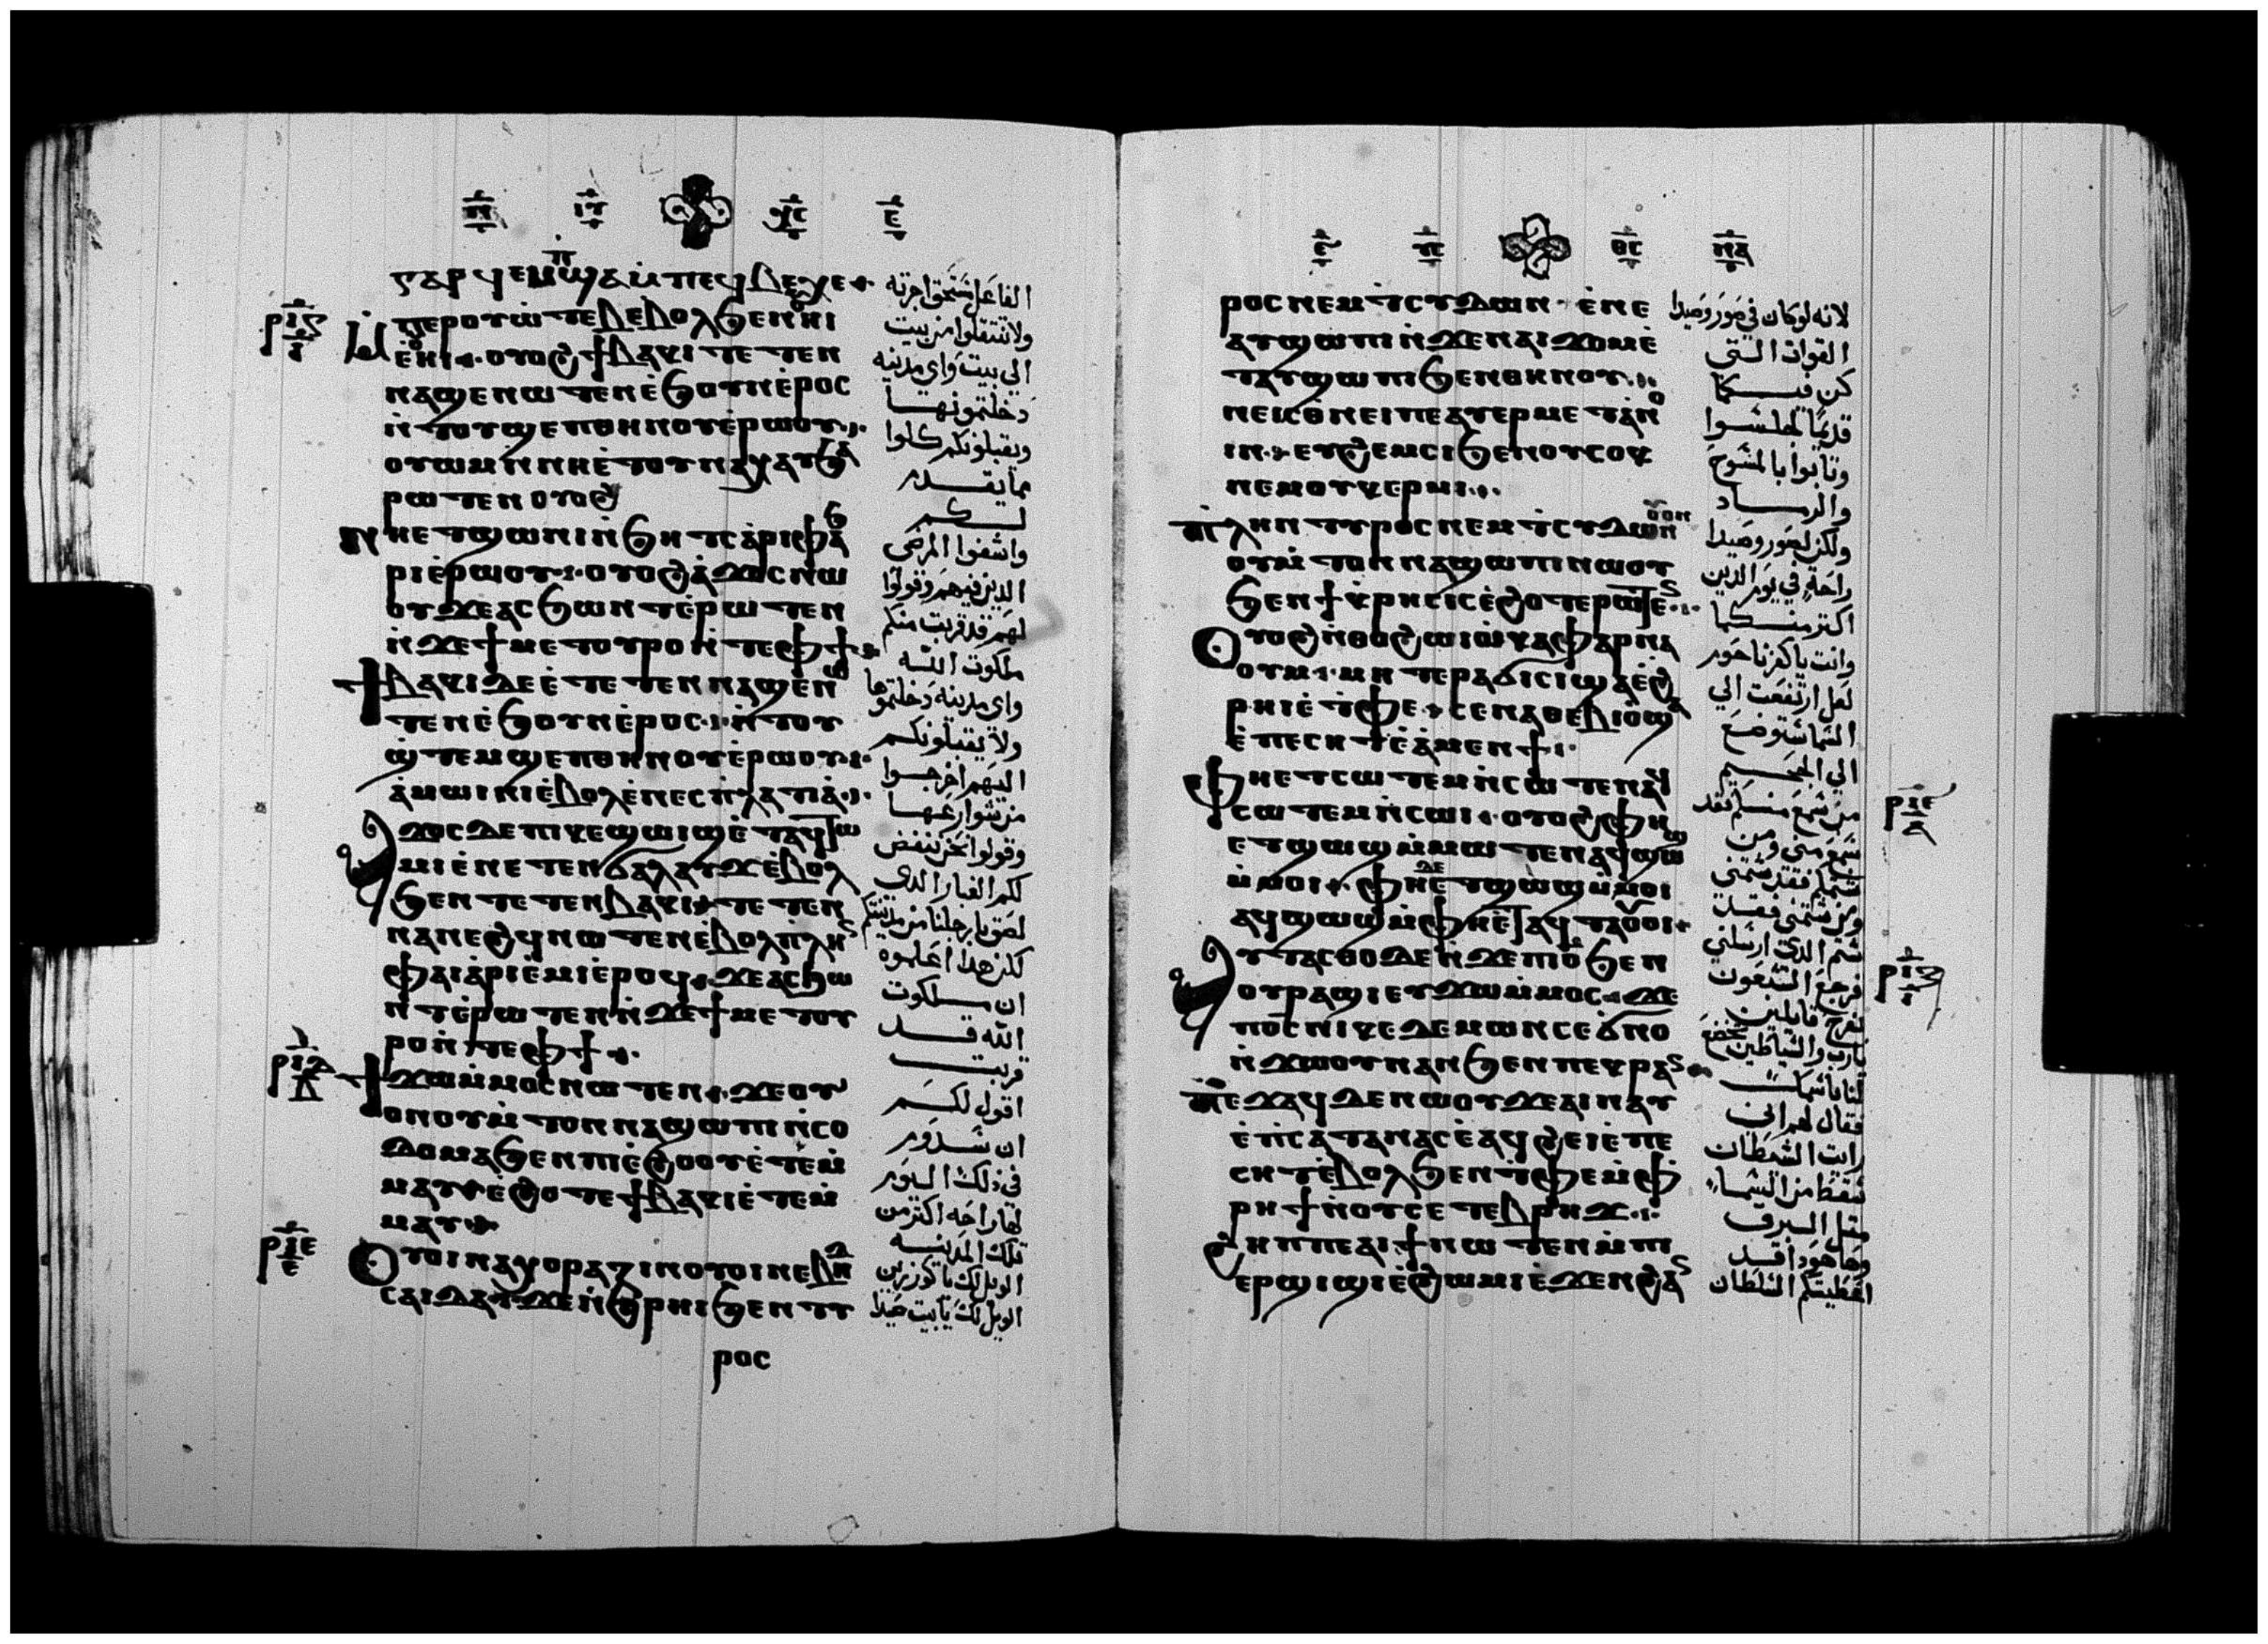 ⲅⲁⲣ ϥⲉⲙⲡϣⲁ ⲙ̀ⲡⲉϥⲃⲉⲭⲉ
ⲙ̀ⲡⲉⲣⲟⲩⲱⲧⲉⲃ ⲉⲃⲟⲗϧⲉⲛ ⲏⲓ
ⲉ̀ⲏⲓ ⲟⲩⲟϩ ϯⲃⲁⲕⲓ ⲧⲉⲧⲉⲛ
ⲛⲁϣⲉⲛⲱⲧⲉⲛ ⲉ̀ϧⲟⲩⲛ ⲉ̀ⲣⲟⲥ
ⲛ̀ⲧⲟⲩϣⲉⲡ ⲑⲏⲛⲟⲩ ⲉ̀ⲣⲱⲟⲩ
ⲟⲩⲱⲙ ⲛ̀ⲛⲏ ⲉ̀ⲧⲟⲩⲛⲁⲭⲁⲩ ϧⲁ
ⲣⲱⲧⲉⲛ ⲟⲩⲟϩ
ⲛⲏ ⲉⲧϣⲱⲛⲓ ⲛ̀ϧⲏⲧⲥ ⲁ̀ⲣⲓⲫⲁ
ϧⲣⲓ ⲉ̀ⲣⲱⲟⲩ ⲟⲩⲟϩ ⲁ̀ϫⲟⲥ ⲛⲱ
ⲟⲩ ϫⲉ ⲁⲥϧⲱⲛⲧ ⲉ̀ⲣⲱⲧⲉⲛ
ⲛ̀ϫⲉ ϯⲙⲉⲧⲟⲩⲣⲟ ⲛ̀ⲧⲉ ⲫϯ
ϯⲃⲁⲕⲓ ⲇⲉ ⲉ̀ⲧⲉⲧⲉⲛⲛⲁϣⲉ ⲛⲱ
ⲧⲉⲛ ⲉ̀ϧⲟⲩⲛ ⲉ̀ⲣⲟⲥ ⲛ̀ⲧⲟⲩ
ϣ̀ⲧⲉⲙϣⲉⲡ ⲑⲏⲛⲟⲩ ⲉ̀ⲣⲱⲟⲩ
ⲁ̀ⲙⲱⲓⲛⲓ ⲉ̀ⲃⲟⲗ ⲉ̀ⲛⲉⲥⲡ̀ⲗⲁⲧⲓⲁ̀
ⲁϫⲟⲥ ϫⲉ ⲡⲓⲕⲉϣⲱⲓϣ ⲉ̀ⲧⲁϥⲧⲱ
ⲙⲓ ⲉ̀ⲛⲉⲧⲉⲛϭⲁⲗⲁⲩϫ ⲉ̀ⲃⲟⲗ
ϧⲉⲛ ⲧⲉⲧⲉⲛⲃⲁⲕⲓ ⲧⲉⲧⲉⲛ
ⲛⲁⲛⲉϩϥ ⲛⲱⲧⲉⲛ ⲉ̀ⲃⲟⲗ ⲡ̀ⲗⲏⲛ
ⲫⲁⲓ ⲁ̀ⲣⲓⲉ̀ⲙⲓ ⲉ̀ⲣⲟϥ ϫⲉ ⲁⲥϧⲱ
ⲛⲧ ⲉ̀ⲣⲱⲧⲉⲛ ⲛ̀ϫⲉ ϯⲙⲉⲧⲟⲩ
ⲣⲟ ⲛ̀ⲧⲉ ⲫϯ
ϯϫⲱ ⲙ̀ⲙⲟⲥ ⲛⲱⲧⲉⲛ ϫⲉ ⲟⲩ
ⲟⲛ ⲟⲩⲙ̀ⲧⲟⲛ ⲛⲁϣⲱⲡⲓ ⲛ̀ⲥⲟ
ⲇⲟⲙⲁ ϧⲉⲛ ⲡⲓⲉ̀ϩⲟⲟⲩ ⲉ̀ⲧⲉⲙ̀
ⲙⲁⲩ ⲉ̀ϩⲟⲧⲉ ϯⲃⲁⲕⲓ ⲉ̀ⲧⲉⲙ̀
ⲙⲁⲩ
ⲟⲩⲟⲓ ⲛⲁ ⲭⲟⲣⲁⲍⲓⲛ ⲟⲩⲟⲓ ⲛⲉ ⲃⲏⲇ
ⲥⲁⲓⲇⲁ ϫⲉ ⲛ̀ϩ̀ⲣⲏⲓ ϧⲉⲛ ⲧⲩ
ⲣⲟⲥ
الفاعل مستحق اجرته
ولا تنتقلوا من بيت
الي بيت واي مدينه
دخلتمونها
ويقبلونكم كلوا
مما يقدم
لكم
واشفوا المرضي
الذين فيهم وقولوا
لهم قد قربت منكم
ملكوت الله
واي مدينه دخلتموها
ولا يقبلونكم
اليهم اخرجوا
من شوارعها
وقولوا نحن ننفض
لكم الغبار الذى
لصق بارجلنا من مدينتكم
لكن هذا اعلموه
ان ملكوت
الله قد
قربت
اقول لكم
ان سدوم
في ذلك اليوم
لها راحه اكثر من
تلك المدينه
الويل لك يا كورزين
الويل لك يا بيت صيدا
ⲣⲟⲥ ⲛⲉⲙ ⲧ̀ⲥⲩⲇⲱⲛ ⲉ̀ⲛⲉ
ⲁⲩϣⲱⲡⲓ ⲛ̀ϫⲉ ⲛⲁⲓϫⲟⲙ ⲉ̀
ⲧⲁⲩϣⲱⲡⲓ ϧⲉⲛ ⲑⲏⲛⲟⲩ
ⲛⲉ ⲓⲥϫⲉⲛ ⲡⲉ ⲁⲩⲉⲣⲙⲉⲧⲁⲛⲟ
ⲓⲛ ⲉⲩϩⲉⲙⲥⲓ ϧⲉⲛ ⲟⲩⲥⲟⲕ
ⲛⲉⲙ ⲟⲩⲕⲉⲣⲙⲓ
ⲡⲗⲏⲛ ⲧⲩⲣⲟⲥ ⲛⲉⲙ ⲧ̀ⲥⲩⲇⲱⲛ ⲟⲩⲟⲛ
ⲟⲩⲙ̀ⲧⲟⲛ ⲛⲁϣⲱⲡⲓ ⲛⲱⲟⲩ
ϧⲉⲛ ϯⲕⲣⲏⲥⲓⲥ ⲉ̀ϩⲟⲧⲉⲣⲱⲧⲉⲛ
ⲟⲩⲟϩ ⲛ̀ⲑⲟ ϩⲱⲓ ⲕⲁⲫⲁⲣⲛⲁ
ⲟⲩⲙ ⲙⲏ ⲧⲉⲣⲁϭⲓⲥⲓ ϣⲁ ⲉ̀ϩ
ⲣⲏⲓ ⲉ̀ⲧ̀ⲫⲉ ⲥⲉⲛⲁⲑⲉⲃⲓⲟ̀ ϣⲁ
ⲉ̀ⲡⲉⲥⲏⲧ ⲉ̀ⲁ̀ⲙⲉⲛϯ
ⲫⲏ ⲉⲧⲥⲱⲧⲉⲙ ⲛ̀ⲥⲱⲧⲉⲛ ⲁϥ
ⲥⲱⲧⲉⲙ ⲛ̀ⲥⲱⲓ ⲟⲩⲟϩ ⲫⲏ
ⲉⲧϣⲱϣ ⲙ̀ⲙⲱⲧⲉⲛ ⲁϥϣⲱϣ
ⲙ̀ⲙⲟⲓ ⲫⲏ ⲇⲉ ⲉⲧϣⲱϣ ⲙ̀ⲙⲟⲓ
ⲁϥϣⲱϣ ⲙ̀ⲫⲏ ⲉ̀ⲧⲁϥⲧⲁⲟⲩⲟⲓ
ⲁⲩⲧⲁⲥⲑⲟ ⲇⲉ ⲛ̀ϫⲉ ⲡⲓⲟ̅ ϧⲉⲛ
ⲟⲩⲣⲁϣⲓ ⲉⲩϫⲱ ⲙ̀ⲙⲟⲥ ϫⲉ
ⲡⲟ̅ⲥ̅ ⲛⲓⲕⲉⲇⲉⲙⲱⲛ ⲥⲉϭⲛⲟ
ⲛ̀ϫⲱⲟⲩ ⲛⲁⲛ ϧⲉⲛ ⲡⲉⲕⲣⲁⲛ
ⲡⲉϫⲁϥ ⲇⲉ ⲛⲱⲟⲩ ϫⲉ ⲁⲓⲛⲁⲩ
ⲉ̀ⲡ̀ⲥⲁⲧⲁⲛⲁⲥ ⲉ̀ⲁϥϩⲉⲓ ⲉ̀ⲡⲉ
ⲥⲏⲧ ⲉ̀ⲃⲟⲗϧⲉⲛ ⲧ̀ⲫⲉ ⲙ̀ⲫ̀
ⲣⲏϯ ⲛ̀ⲟⲩⲥⲉⲧⲉⲃⲣⲏϫ
ϩⲏⲡⲡⲉ ⲁⲓϯ ⲛⲱⲧⲉⲛ ⲙ̀ⲡⲓ
ⲉⲣϣⲓϣⲓ ⲉ̀ϩⲱⲙⲓ ⲉ̀ϫⲉⲛ ϩⲁⲛ
لانه لو كان في صور وصيدا
القوات التى
كن فيكما
قديما لجلسوا
وتابوا بالمسوح
والرماد
ولكن لصور وصيدا
راحة في يوم الدين
اكثر منكما
وانت يا كفرناحوم
لعل ارتفعت الي
السما ستوضع
الي الجحيم
من سمع منكم فقد
سمع مني ومن
شتمكم فقد شتمني
ومن شتمني فقد
شتم الذى ارسلني
فرجع السبعون
بفرح قايلين
يارب والشياطين تخضع
لنا باسمك
فقال لهم اني
رايت الشيطان
سقط من السماء
مثل البرق
وها هوذا قد
اعطيتكم السلطان